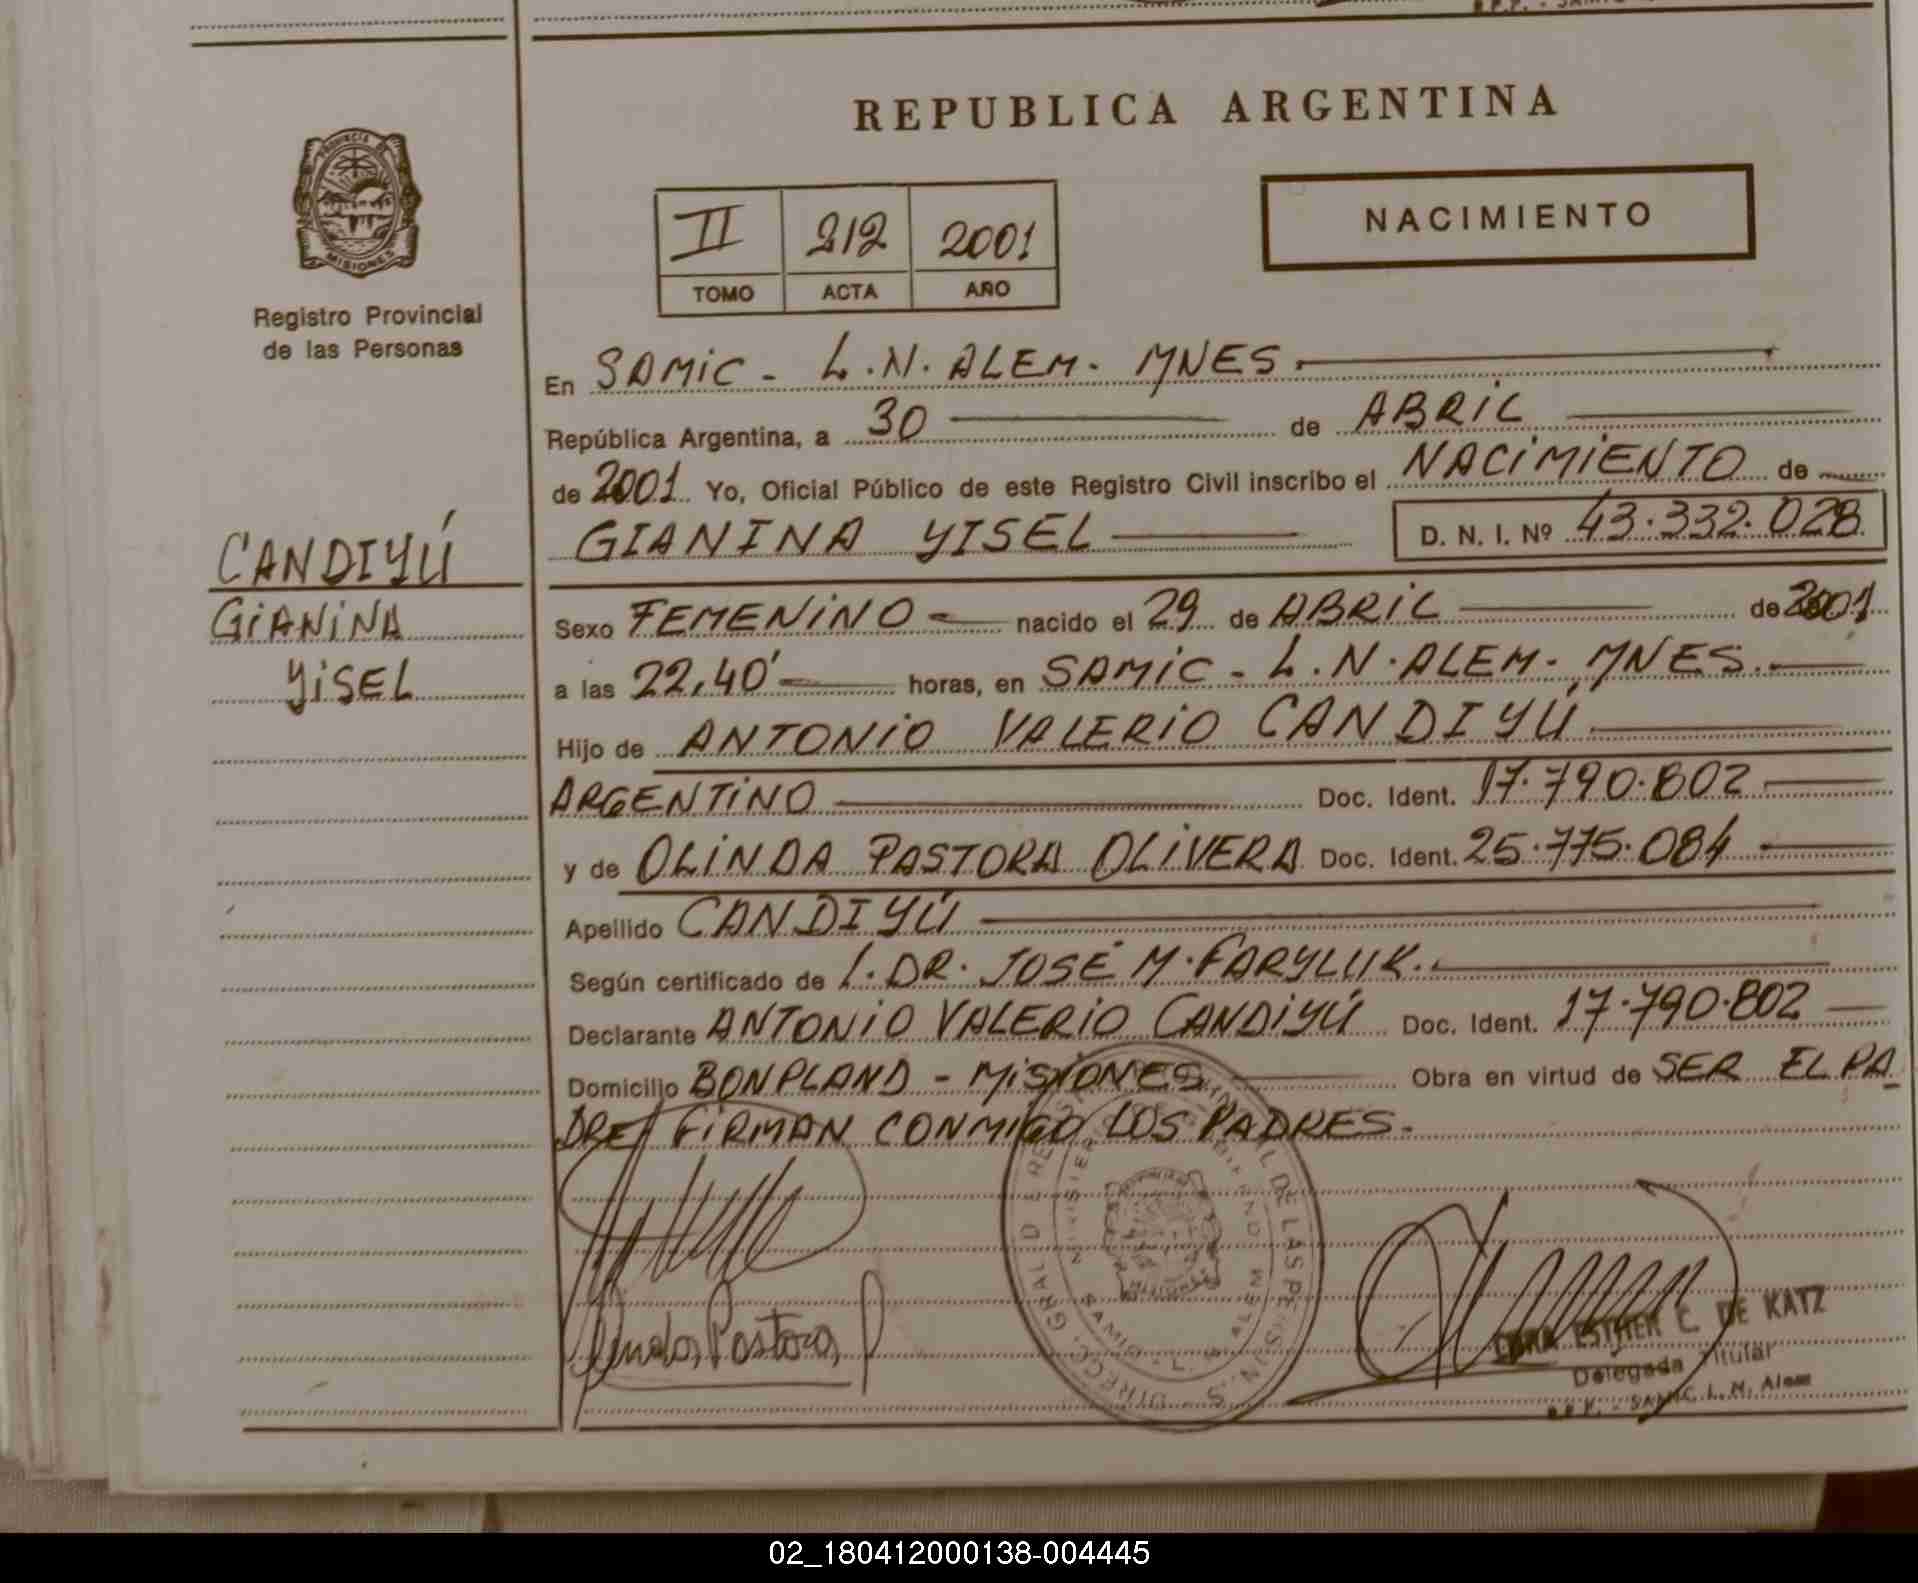 REPUBLICA ARGENTINA
PROVINCIA DE
MISIONES
Registro Provincial
de las Personas
NACIMIENTO
II 212 2001
TOMO ACTA AÑO
En SAMIC - L.N. ALEM - MNES
República Argentina, a 30 de ABRIL
de 2001 Yo, Oficial Público de este Registro Civil inscribo el NACIMIENTO de
GIANINA YISEL D. N. I. Nº 43.332.028
CANDIYÚ
GIANINA
YISEL
Sexo FEMENINO nacido el 29 de ABRIL de 2001
a las 22,40' horas, en SAMIC - L.N. ALEM - MNES.
Hijo de ANTONIO VALERIO CANDIYÚ
ARGENTINO Doc. Ident. 17.790.802
y de OLINDA PASTORA OLIVERA Doc. Ident. 25.775.084
Apellido CANDIYÚ
Según certificado de l. DR. JOSÉ M. FARYLUK.
Declarante ANTONIO VALERIO CANDIYÚ Doc. Ident. 17.790.802
Domicilio BONPLAND - MISIONES Obra en virtud de SER EL PA
DRE FIRMAN CONMIGO LOS PADRES.
Pastora
ESTHER C. DE KATZ
Delegada Titular
SAMIC L. N. Alem
02_180412000138-004445